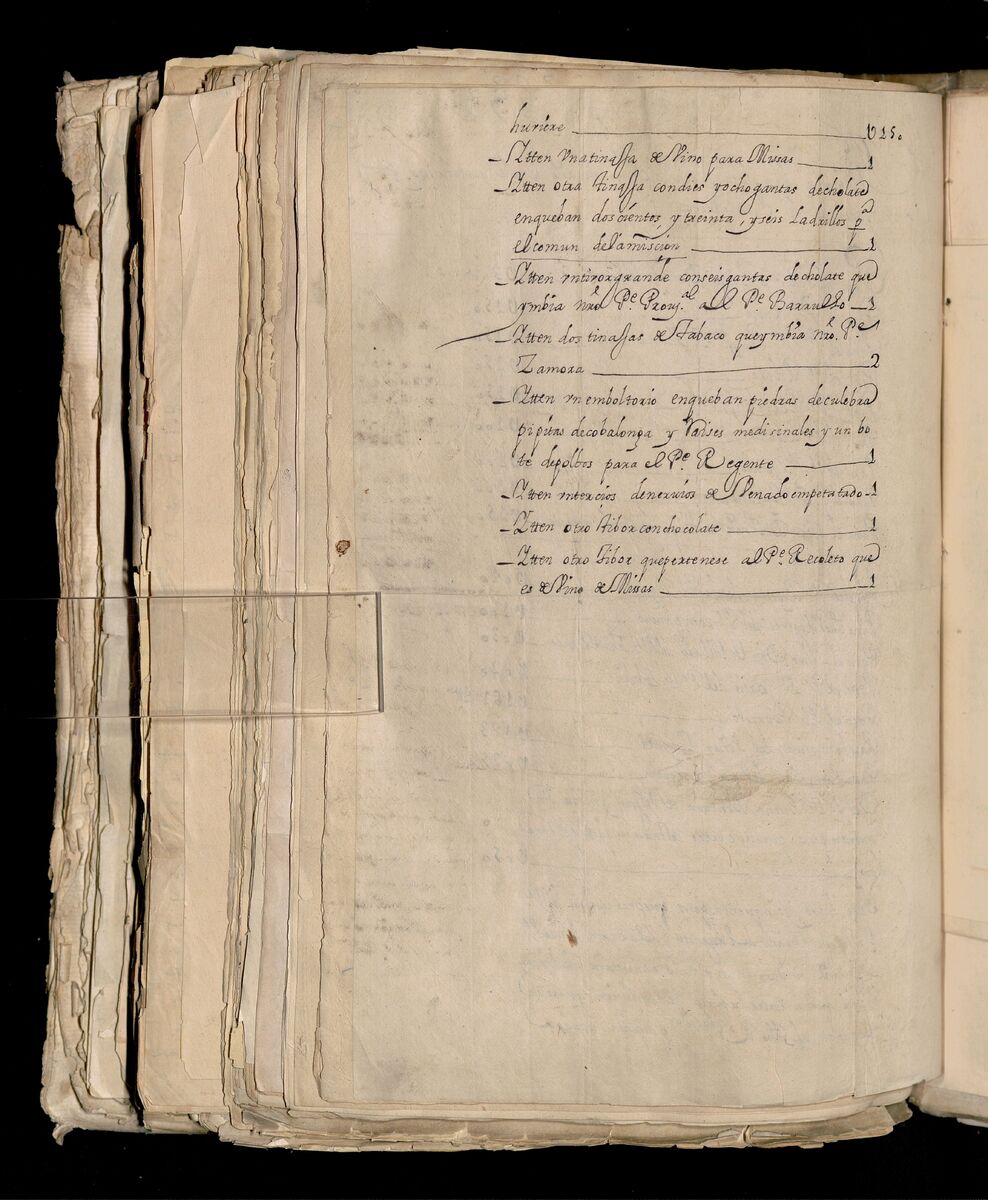 huriere 015.
Itten Vna tinassa de Vino para Missas 1
Itten otra tinassa con dies y ocho gantas de cholate
en que ban doscientos, y treinta, y seis Ladrillos pa
el comun de la mision 1
Itten vn tivor grande con seis gantas de cholate que
ymbia nro Pe. Provl. al Pe. 1
Itten dos tinassas de Tabaco que ymbia nro. Pe
Zamora 2
Itten vn emboltorio en que ban piedras de culebra
pipitas de cobalonga y Raises medisinales y un bo
te de polbos para el Pe. Regente 1
Itten vn tercios de nervios de Venado empetatado 1
Itten otro tibor con chocolate 1
Itten otro tibor que pertenese al Pe. Recoleto que
es de Vino de Missas 1